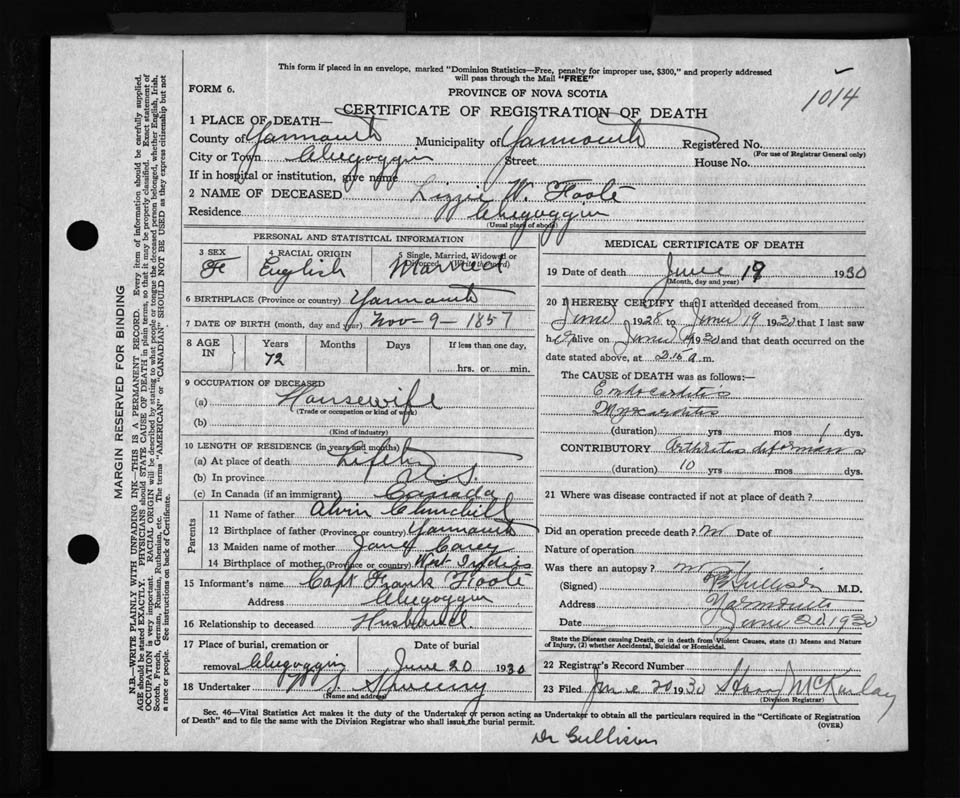 This form if placed in an envelope, marked "Dominion Statistics—Free, penalty for improper use, $300," and properly addressed
will pass through the Mail "FREE"
FORM 6.
PROVINCE OF NOVA SCOTIA
1014
CERTIFICATE OF REGISTRATION OF DEATH
1 PLACE OF DEATH—
County of Yarmouth Municipality of Yarmouth Registered No.
(For use of Registrar General only)
City or Town Chegoggin Street House No.
If in hospital or institution, give name
2 NAME OF DECEASED Lizzie W. Foote
Residence Chegoggin
(Usual place of abode)
PERSONAL AND STATISTICAL INFORMATION
3 SEX 4 RACIAL ORIGIN 5 Single, Married, Widowed or Divorced, (Write the word)
Fe English Married
6 BIRTHPLACE (Province or country) Yarmouth
7 DATE OF BIRTH (month, day and year) Nov - 9 - 1857
8 AGE IN Years Months Days If less than one day,
72 hrs. or min.
9 OCCUPATION OF DECEASED
(a) Housewife
(Trade or occupation or kind of work)
(b)
(Kind of industry)
10 LENGTH OF RESIDENCE (in years and months)
(a) At place of death Lifetime
(b) In province N.S.
(c) In Canada (if an immigrant) Canada
Parents
11 Name of father Alvin Churchill
12 Birthplace of father (Province or country) Yarmouth
13 Maiden name of mother Jane Carey
14 Birthplace of mother (Province or country) West Indies
15 Informant's name Capt Frank Foote
Address Chegoggin
16 Relationship to deceased Husband.
17 Place of burial, cremation or removal Chegoggin
Date of burial June 20 1930
18 Undertaker Sweeny
(Name and address)
MEDICAL CERTIFICATE OF DEATH
19 Date of death June 19 1930
(Month, day and year)
20 I HEREBY CERTIFY that I attended deceased from
June 1928 to June 19 1930 that I last saw
her alive on June 19 1930 and that death occurred on the
date stated above, at 2.15 a.m.
The CAUSE of DEATH was as follows:—
Endocarditis
Myocarditis
(duration) yrs mos 1 dys.
CONTRIBUTORY Arthritis deformans
(duration) 10 yrs mos dys.
21 Where was disease contracted if not at place of death?
Did an operation precede death? no Date of
Nature of operation
Was there an autopsy? no
(Signed) Gullison M.D.
Address Yarmouth
Date June 20 1930
State the Disease causing Death, or in death from Violent Causes, state (1) Means and
Nature of Injury, (2) whether Accidental, Suicidal or Homicidal.
22 Registrar's Record Number
23 Filed June 20 1930 McKinlay
(Division Registrar)
Sec. 46—Vital Statistics Act makes it the duty of the Undertaker or person acting as Undertaker to obtain all the particulars required in the "Certificate of Registration
of Death" and to file the same with the Division Registrar who shall issue the burial permit.
(OVER)
Dr Gullison
MARGIN RESERVED FOR BINDING
N.B.—WRITE PLAINLY WITH UNFADING INK—THIS IS A PERMANENT RECORD. Every item of information should be carefully supplied.
AGE should be stated EXACTLY. PHYSICIANS should STATE CAUSE OF DEATH in plain terms, so that it may be properly classified. Exact statement of
OCCUPATION is very important. RACIAL ORIGIN will be described by stating to what people or tongue the deceased person belonged, whether English, Irish,
Scotch, French, German, Russian, Ruthenian, etc. The terms "AMERICAN" or "CANADIAN" SHOULD NOT BE USED as they express citizenship but not
a race or people. See instructions on back of Certificate.